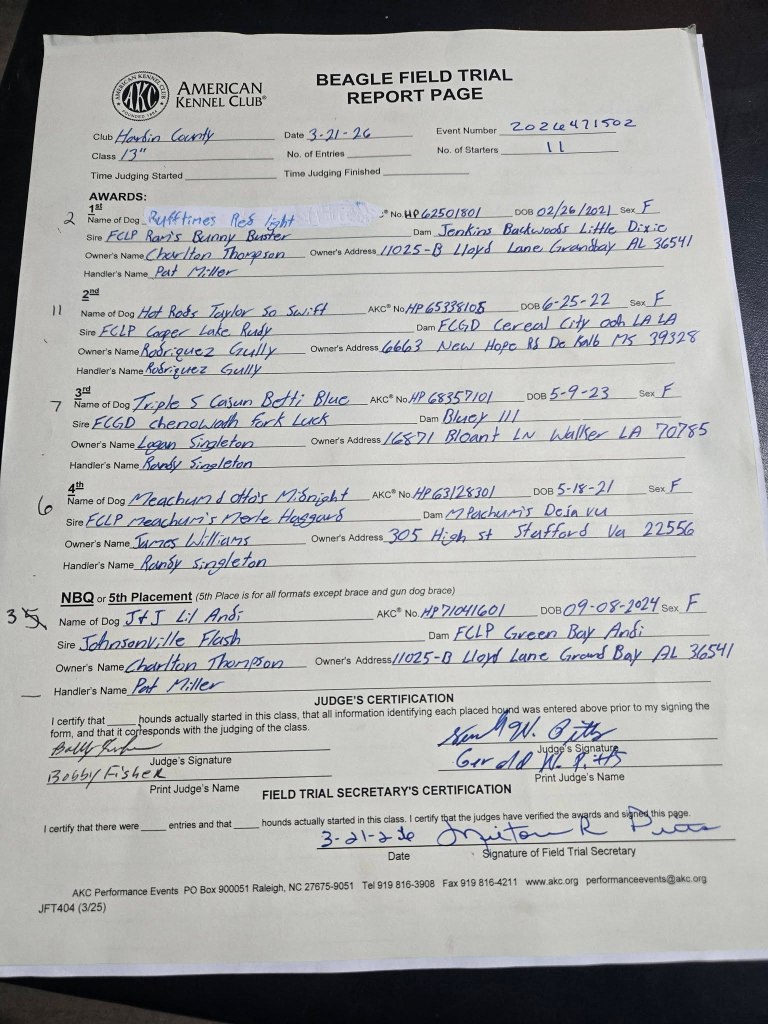 AMERICAN KENNEL CLUB
FOUNDED 1884
AKC
AMERICAN
KENNEL CLUB®
BEAGLE FIELD TRIAL
REPORT PAGE
Club Harbin County Date 3-21-26 Event Number 2026471502
Class 13" No. of Entries No. of Starters 11
Time Judging Started Time Judging Finished
AWARDS:
1st
2 Name of Dog Ruff times Red light No. HP62501801 DOB 02/26/2021 Sex F
Sire FCLP Rari's Bunny Buster Dam Jenkins Backwoods Little Dixie
Owner's Name Charlton Thompson Owner's Address 11025-B Lloyd Lane Grandbay AL 36541
Handler's Name Pat Miller
2nd
11 Name of Dog Hot Rods Taylor So Swift AKC® No. HP65338105 DOB 6-25-22 Sex F
Sire FCLP Cooper Lake Rudy Dam FCGD Cereal City ooh LA LA
Owner's Name Rodriguez Gully Owner's Address 6663 New Hope Rd De Kalb MS 39328
Handler's Name Rodriguez Gully
3rd
7 Name of Dog Triple S Cajun Betti Blue AKC® No. HP68357101 DOB 5-9-23 Sex F
Sire FCGD Chenowath Fork Luck Dam Bluey III
Owner's Name Logan Singleton Owner's Address 16871 Bloant LN Walker LA 70785
Handler's Name Randy Singleton
4th
6 Name of Dog Meachum d otto's Midnight AKC® No. HP63128301 DOB 5-18-21 Sex F
Sire FCLP Meachum's Merle Haggard Dam Mpachum's Deja vu
Owner's Name James Williams Owner's Address 305 High st Stafford Va 22556
Handler's Name Randy Singleton
NBQ or 5th Placement (5th Place is for all formats except brace and gun dog brace)
3 Name of Dog J+J Lil Andi AKC® No. HP71041601 DOB 09-08-2024 Sex F
Sire Johnsonville Flash Dam FCLP Green Bay Andi
Owner's Name Charlton Thompson Owner's Address 11025-B Lloyd Lane Grand Bay AL 36541
Handler's Name Pat Miller
JUDGE'S CERTIFICATION
I certify that ____ hounds actually started in this class, that all information identifying each placed hound was entered above prior to my signing the
form, and that it corresponds with the judging of the class.
Judge's Signature Judge's Signature
Bobby Fisher Gerald W. Pitts
Print Judge's Name Print Judge's Name
FIELD TRIAL SECRETARY'S CERTIFICATION
I certify that there were ____ entries and that ____ hounds actually started in this class. I certify that the judges have verified the awards and signed this page.
3-21-26
Date Signature of Field Trial Secretary
AKC Performance Events PO Box 900051 Raleigh, NC 27675-9051 Tel 919 816-3908 Fax 919 816-4211 www.akc.org performanceevents@akc.org
JFT404 (3/25)